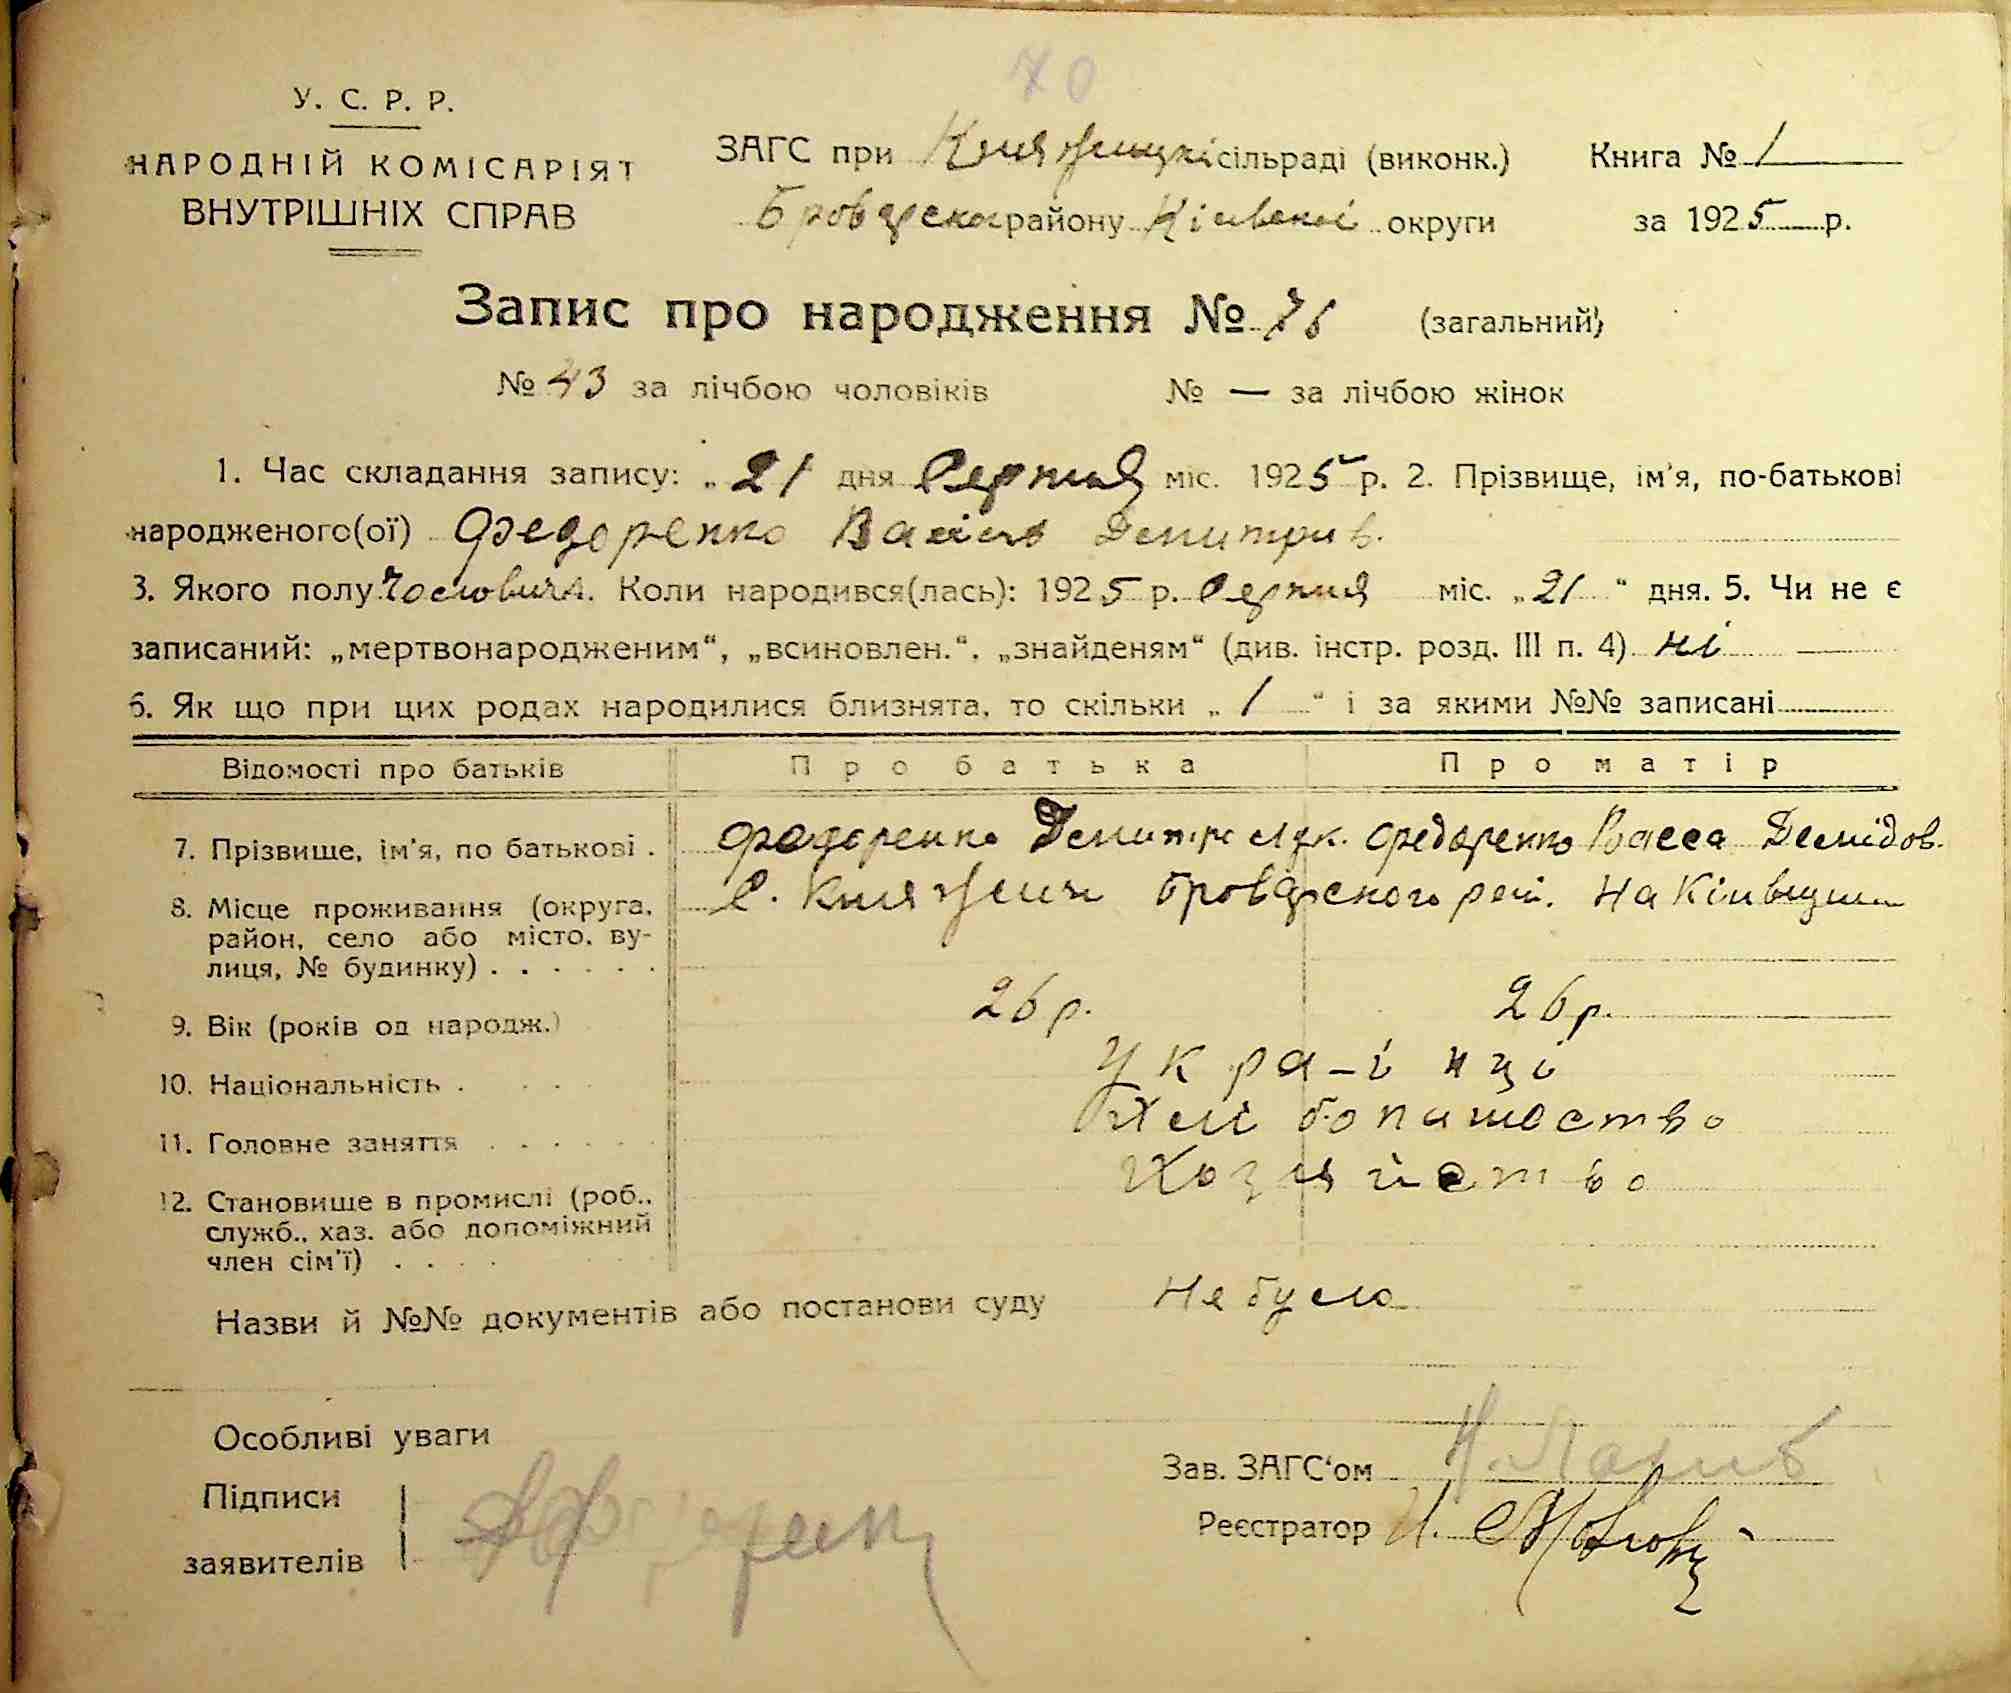 70
У. С. Р. Р.
НАРОДНІЙ КОМІСАРІЯТ
ВНУТРІШНІХ СПРАВ
ЗАГС при Княжицькі сільраді (виконк.) Книга № 1
Броварског району Київскої округи за 1925 р.
Запис про народження № 76 (загальний)
№ 43 за лічбою чоловіків № — за лічбою жінок
1. Час складання запису: „21 дня Серпня міс. 1925 р. 2. Прізвище, ім'я, по-батькові
народженого(ої) Федоренко Василь Демитрив.
3. Якого полу Чоловича. Коли народився(лась): 1925 р. Серпня міс. „21“ дня. 5. Чи не є
записаний: „мертвонародженим“, „всиновлен.“, „знайденям“ (див. інстр. розд. III п. 4) ні
6. Як що при цих родах народилися близнята, то скільки „1“ і за якими №№ записані
Відомості про батьків Про батька Про матір
7. Прізвище, ім'я, по батькові . Федоренко Демитро Лук. Федоренко Васса Демідов.
8. Місце проживання (округа, С. Княжичи Броварского рай. На Київщини
район, село або місто, ву-
лиця, № будинку) . . . . . .
9. Вік (років од народж.) 26 р. 26 р.
10. Національність . . . . Укра-інці
11. Головне заняття . . . . . . Хлібопашество
12. Становище в промислі (роб., Хозяйство
служб., хаз. або допоміжний
член сім'ї) . . . .
Назви й №№ документів або постанови суду Не було
Особливі уваги
Підписи
заявителів
Зав. ЗАГС'ом
Реєстратор И.